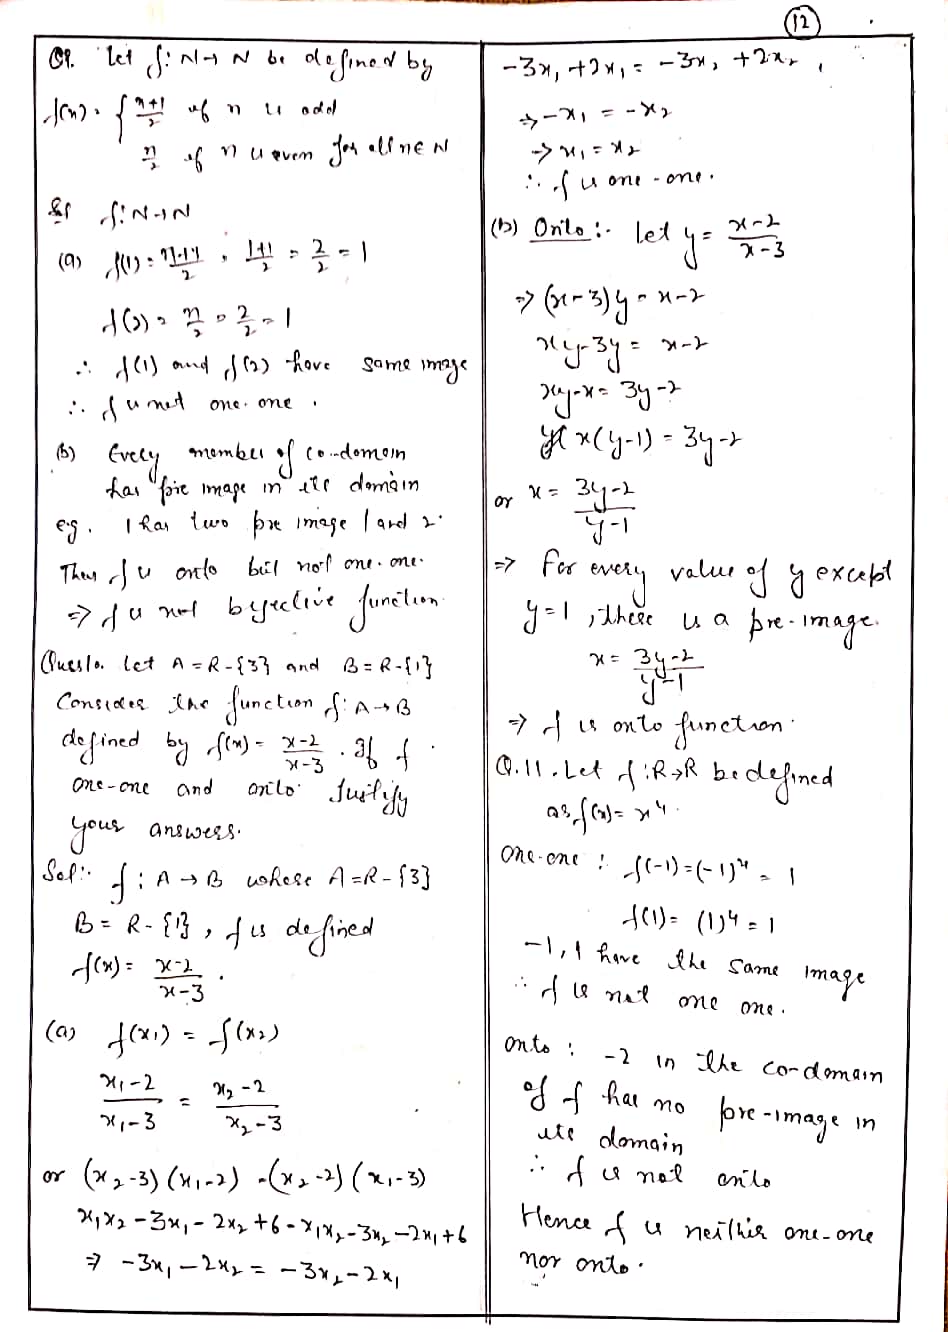 12
Q9. Let f: N→N be defined by
f(n) = { n+1/2 if n is odd
n/2 if n is even for all n ∈ N
Sol f: N→N
(a) f(1) = n+1/2 , 1+1/2 = 2/2 = 1
f(2) = n/2 = 2/2 = 1
∴ f(1) and f(2) have same image
∴ f is not one-one.
(b) Every member of co-domain
has pre image in its domain
e.g. 1 has two pre image 1 and 2.
Thus f is onto but not one-one.
⇒ f is not bijective function.
Ques10. Let A = R-{3} and B = R-{1}
Consider the function f: A→B
defined by f(x) = x-2/x-3 . If f
one-one and onto. Justify
your answers.
Sol:. f: A → B where A = R-{3}
B = R-{1}, f is defined
f(x) = x-2/x-3 .
(a) f(x₁) = f(x₂)
x₁-2/x₁-3 = x₂-2/x₂-3
or (x₂-3)(x₁-2) = (x₂-2)(x₁-3)
x₁x₂-3x₁-2x₂+6 = x₁x₂-3x₂-2x₁+6
⇒ -3x₁-2x₂ = -3x₂-2x₁
-3x₁+2x₁ = -3x₂+2x₂,
⇒ -x₁ = -x₂
→ x₁ = x₂
∴ f is one-one.
(b) Onto:- Let y = x-2/x-3
⇒ (x-3)y = x-2
xy-3y = x-2
xy-x = 3y-2
x(y-1) = 3y-2
or x = 3y-2/y-1
⇒ For every value of y except
y=1, there is a pre-image.
x = 3y-2/y-1
⇒ f is onto function.
Q.11. Let f: R→R be defined
as f(x) = x⁴.
One-one : f(-1) = (-1)⁴ = 1
f(1) = (1)⁴ = 1
-1, 1 have the same image
∴ f is not one one.
onto : -2 in the co-domain
of f has no pre-image in
its domain
∴ f is not onto
Hence f is neither one-one
nor onto.